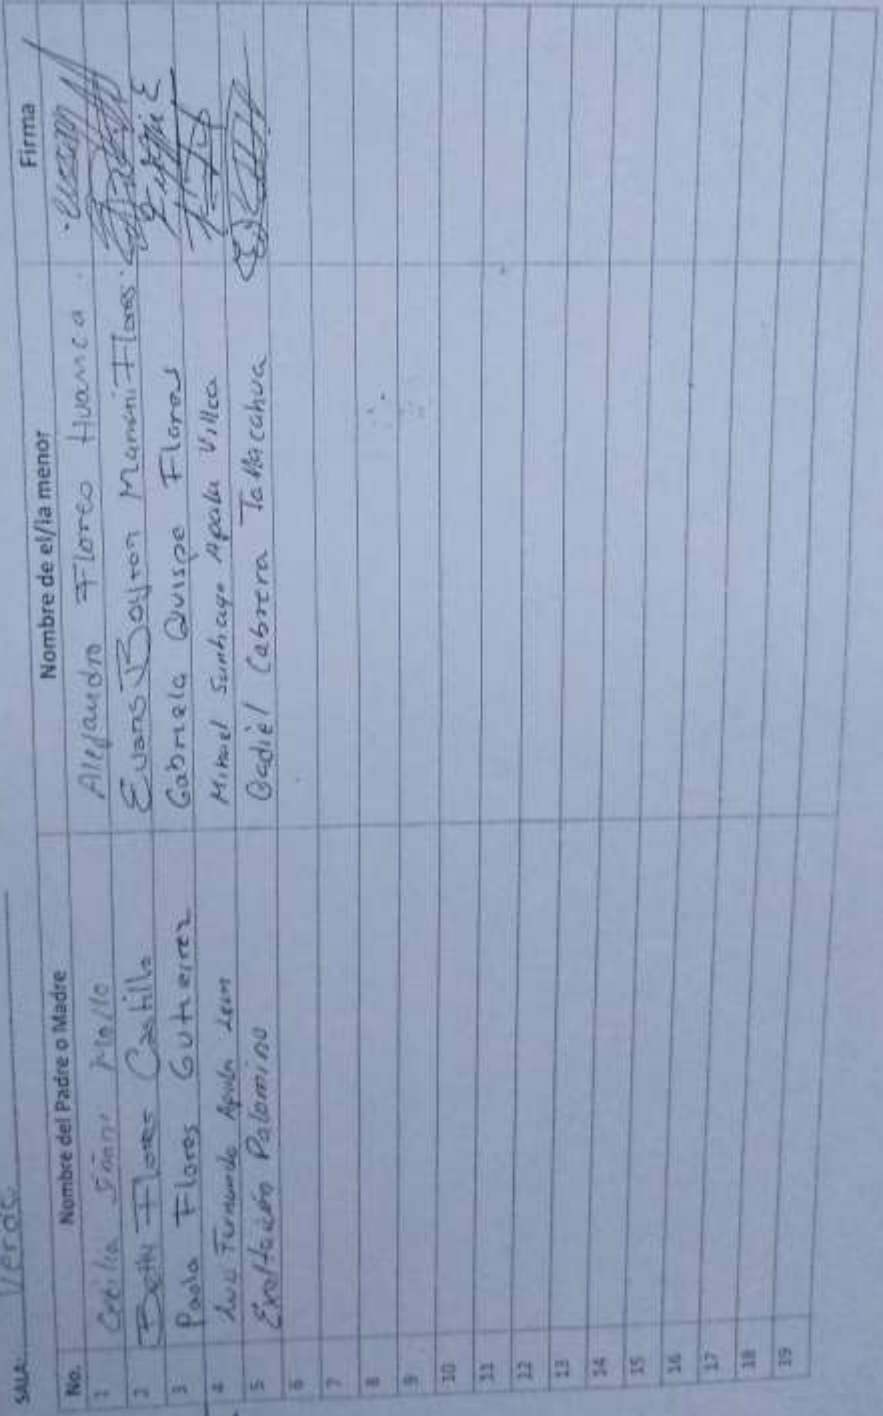 SALA: Verde
No. Nombre del Padre o Madre Nombre de el/la menor Firma
1 Cecilia Mollo Alejandro Flores Huanca
2 Betty Flores Castillo Evans Bayron Mamani Flores
3 Paola Flores Gutierrez Gabriela Quispe Flores
4 Luis Fernando Apala Leon Misael Santiago Apala Villca
5 Exaltación Palomino Gadiel Cabrera
6
7
8
9
10
11
12
13
14
15
16
17
18
19